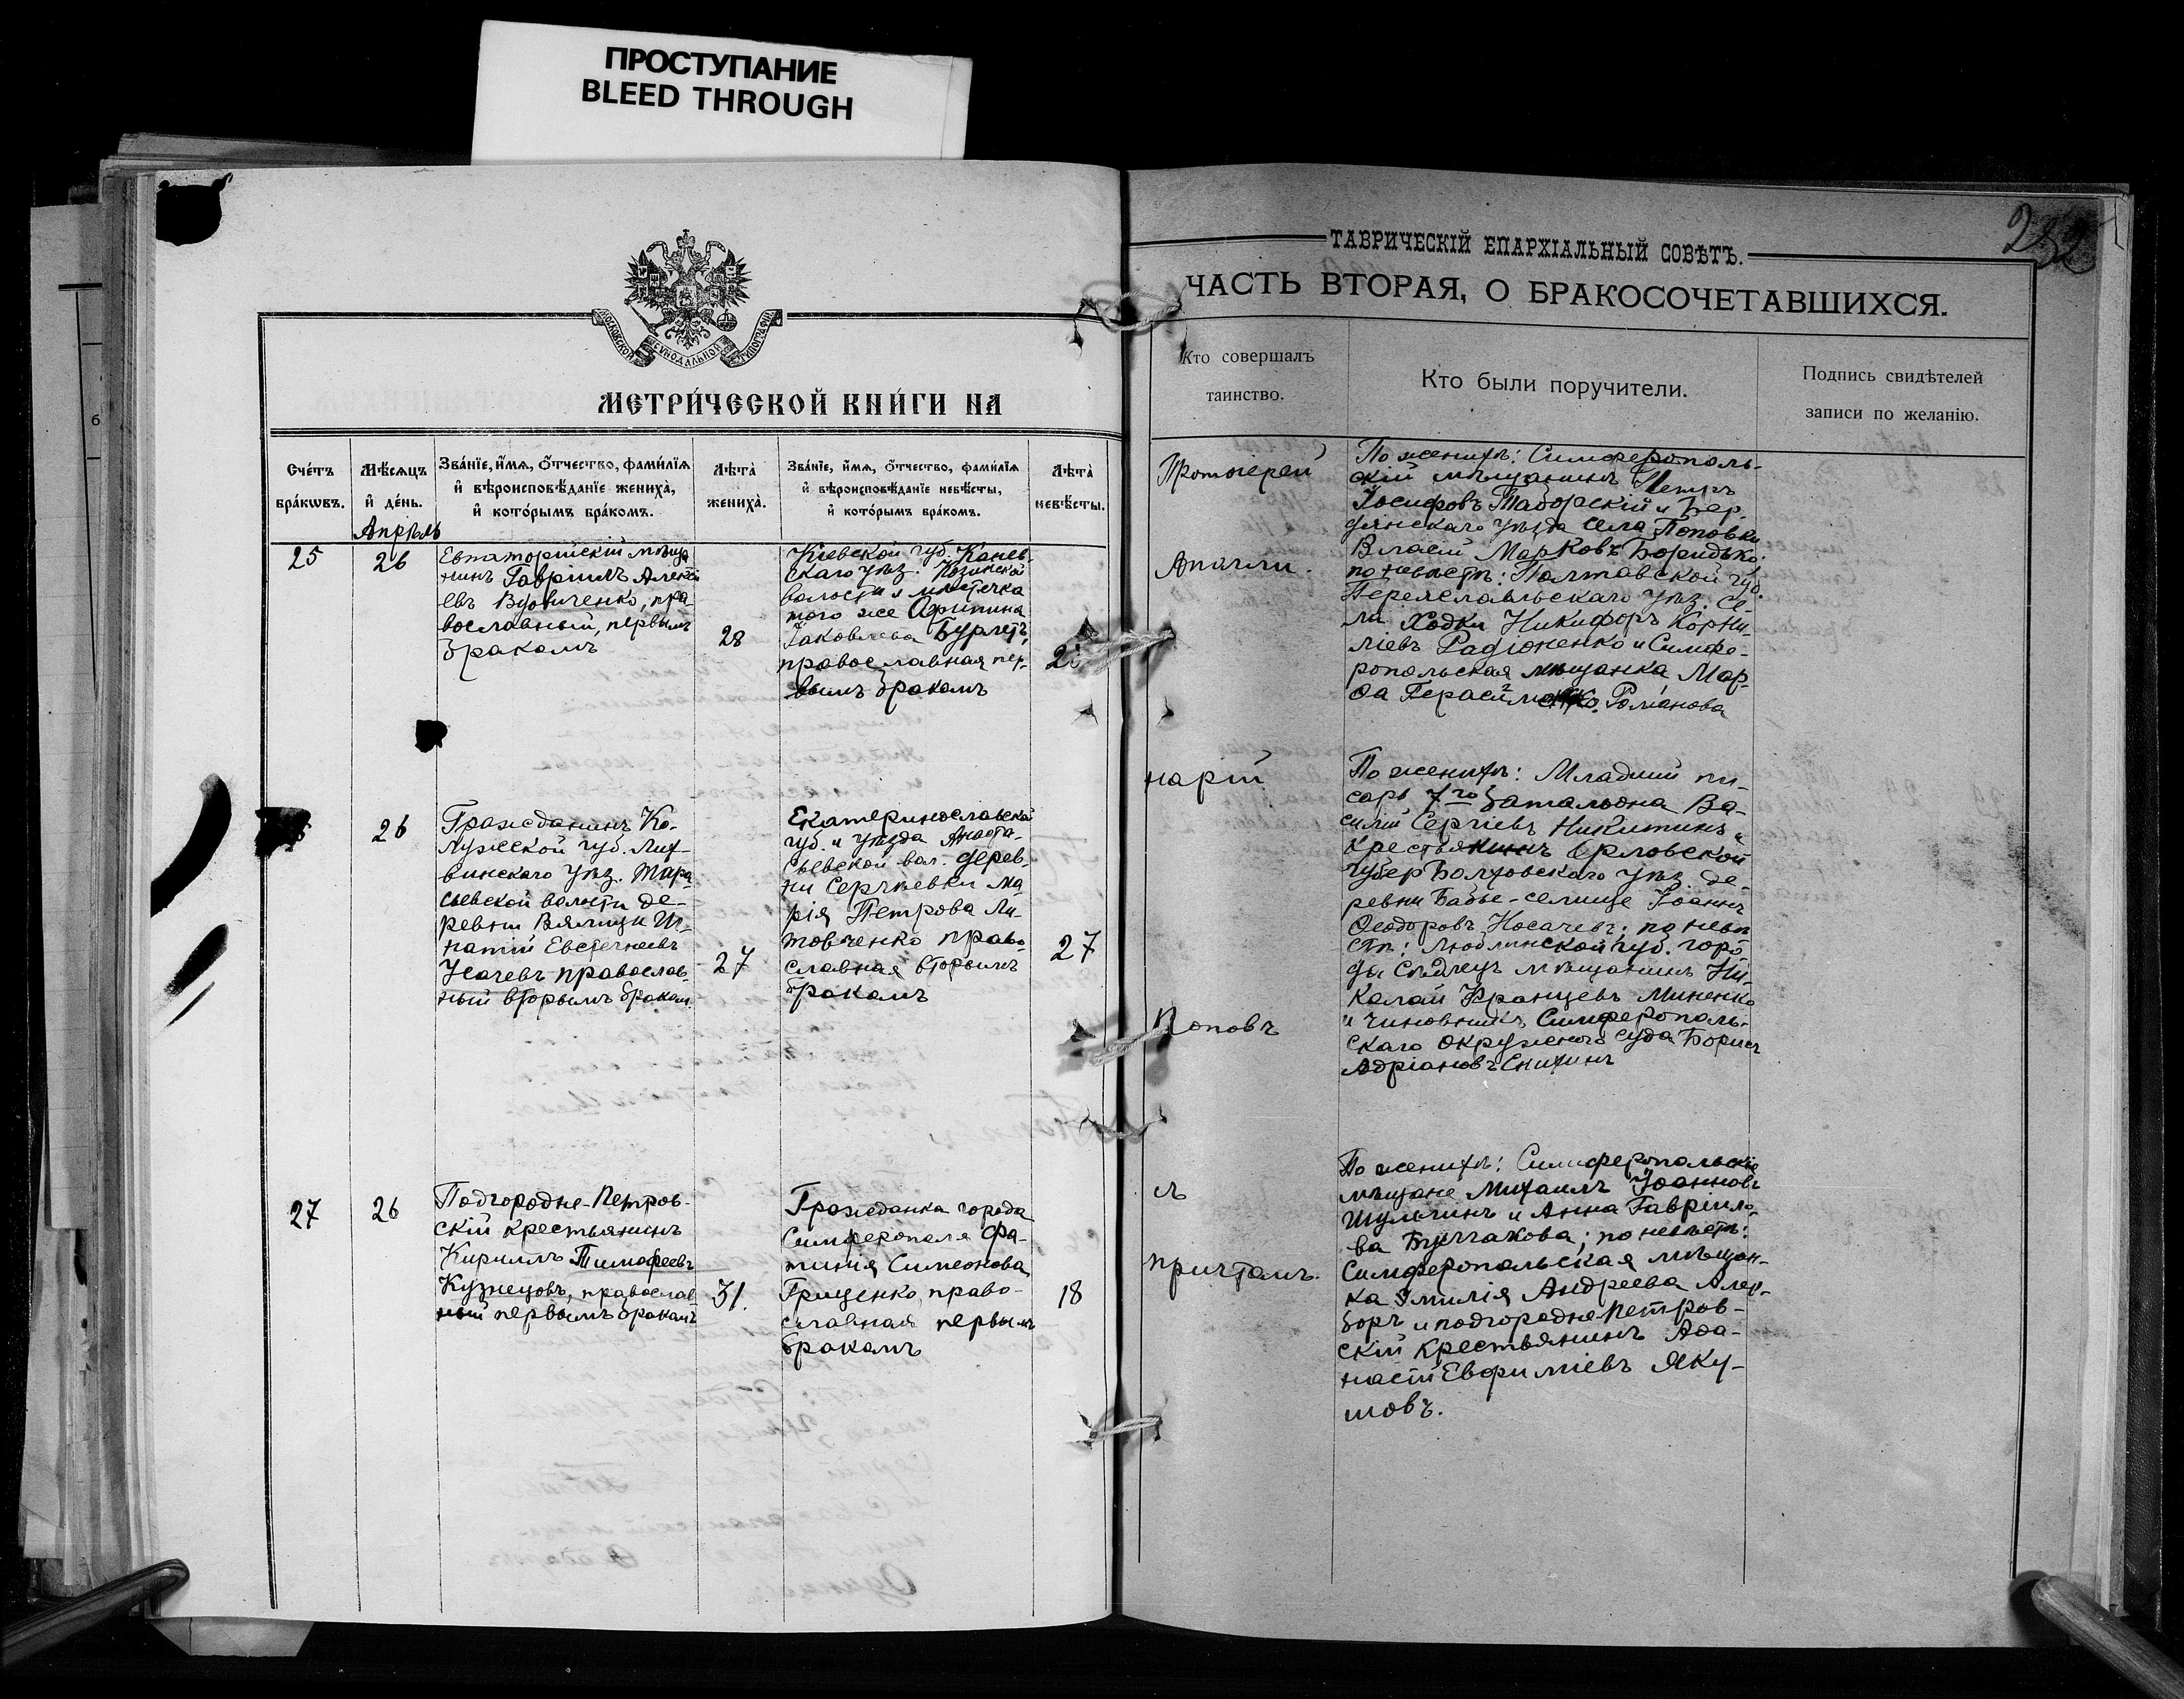 ПРОСТУПАНИЕ
BLEED THROUGH
МОСКОВСКОЙ СѴНОДАЛЬНОЙ ТИПОГРАФІИ
МЕТРИ́ЧЕСКОЙ КНИ́ГИ НА
Сче́тъ
бра́кѡвъ.
Мѣ́сѧцъ
и҆ де́нь.
Зва́нїе, и҆́мѧ, ѻ҆́тчество, фами́лїѧ
и҆ вѣроисповѣ́данїе жениха̀,
и҆ кото́рымъ бра́комъ.
Лѣта̀
жениха̀.
Зва́нїе, и҆́мѧ, ѻ҆́тчество, фами́лїѧ
и҆ вѣроисповѣ́данїе невѣ́сты,
и҆ кото́рымъ бра́комъ.
Лѣта̀
невѣ́сты.
Апрѣль
25
26
Евпаторійскій мѣща
нинъ Гавріилъ Алексѣ
евъ Вдовиченко, пра-
вославный, первымъ
бракомъ
28
Кіевской губ. Канев-
скаго уѣз. Козинской
волости и мѣстечка
того же Агрипина
Іаковлева Бурлетъ,
православная пер-
вымъ бракомъ
26
Гражданинъ Ка-
лужской губ. Лих-
винскаго уѣз.
волости де-
ревни
натій Евстигнеевъ
Усачевъ православ
ный вторымъ бракомъ
27
Екатеринославской
губ. и уѣзда Анаста-
сьевской вол. дерев-
ни Сергѣевки Ма
рія Петрова Ли-
товченко право
славная вторымъ
бракомъ
27
27
26
Подгородне-Петров-
скій крестьянинъ
Кириллъ Тимофеевъ
Кузнецовъ, православ
ный первымъ бракомъ
31.
Гражданка города
Симферополя Фа-
тинія Симеонова
Грищенко, право-
славная первымъ
бракомъ
18
232
ТАВРИЧЕСКІЙ ЕПАРХІАЛЬНЫЙ СОВѢТЪ.
ЧАСТЬ ВТОРАЯ, О БРАКОСОЧЕТАВШИХСЯ.
Кто совершалъ
таинство.
Кто были поручители.
Подпись свидѣтелей
записи по желанію.
Протоіерей
Аполли
нарій
Поповъ
съ
причтомъ.
По женихѣ: Симферополь-
скій мѣщанинъ Петръ
Іосифовъ Таборскій и Бер-
дянскаго уѣзда села Поповки
Власій Марковъ Боридько;
по невѣстѣ: Полтавской губ.
Переяславльскаго уѣз. се-
ла Ходки Никифоръ Корни-
ліевъ Радіоненко и Симфе-
ропольская мѣщанка Мар-
ѳа Романова
По женихѣ: Младшій пи-
сарь 7го баталіона Ва-
силій Сергіевъ Никитинъ и
крестьянинъ Орловской
губер Болховскаго уѣз. де-
ревни Бабье-селище Іоаннъ
Ѳеодоровъ Носачевъ; по невѣ
стѣ: Люблинской губ. горо-
да Сѣдлецъ мѣщанинъ Ни-
колай Францевъ Миненко
и чиновникъ Симферополь-
скаго окружного суда Борисъ
Адріановъ
По женихѣ: Симферопольскіе
мѣщане Михаилъ Іоанновъ
Шульгинъ и Анна Гавріило-
ва Булгакова; по невѣстѣ:
Симферопольская мѣщан-
ка Эмилія Андреева
и подгородне-Петров-
скій крестьянинъ Аѳа-
насій Евфиміевъ Яку-
шовъ.